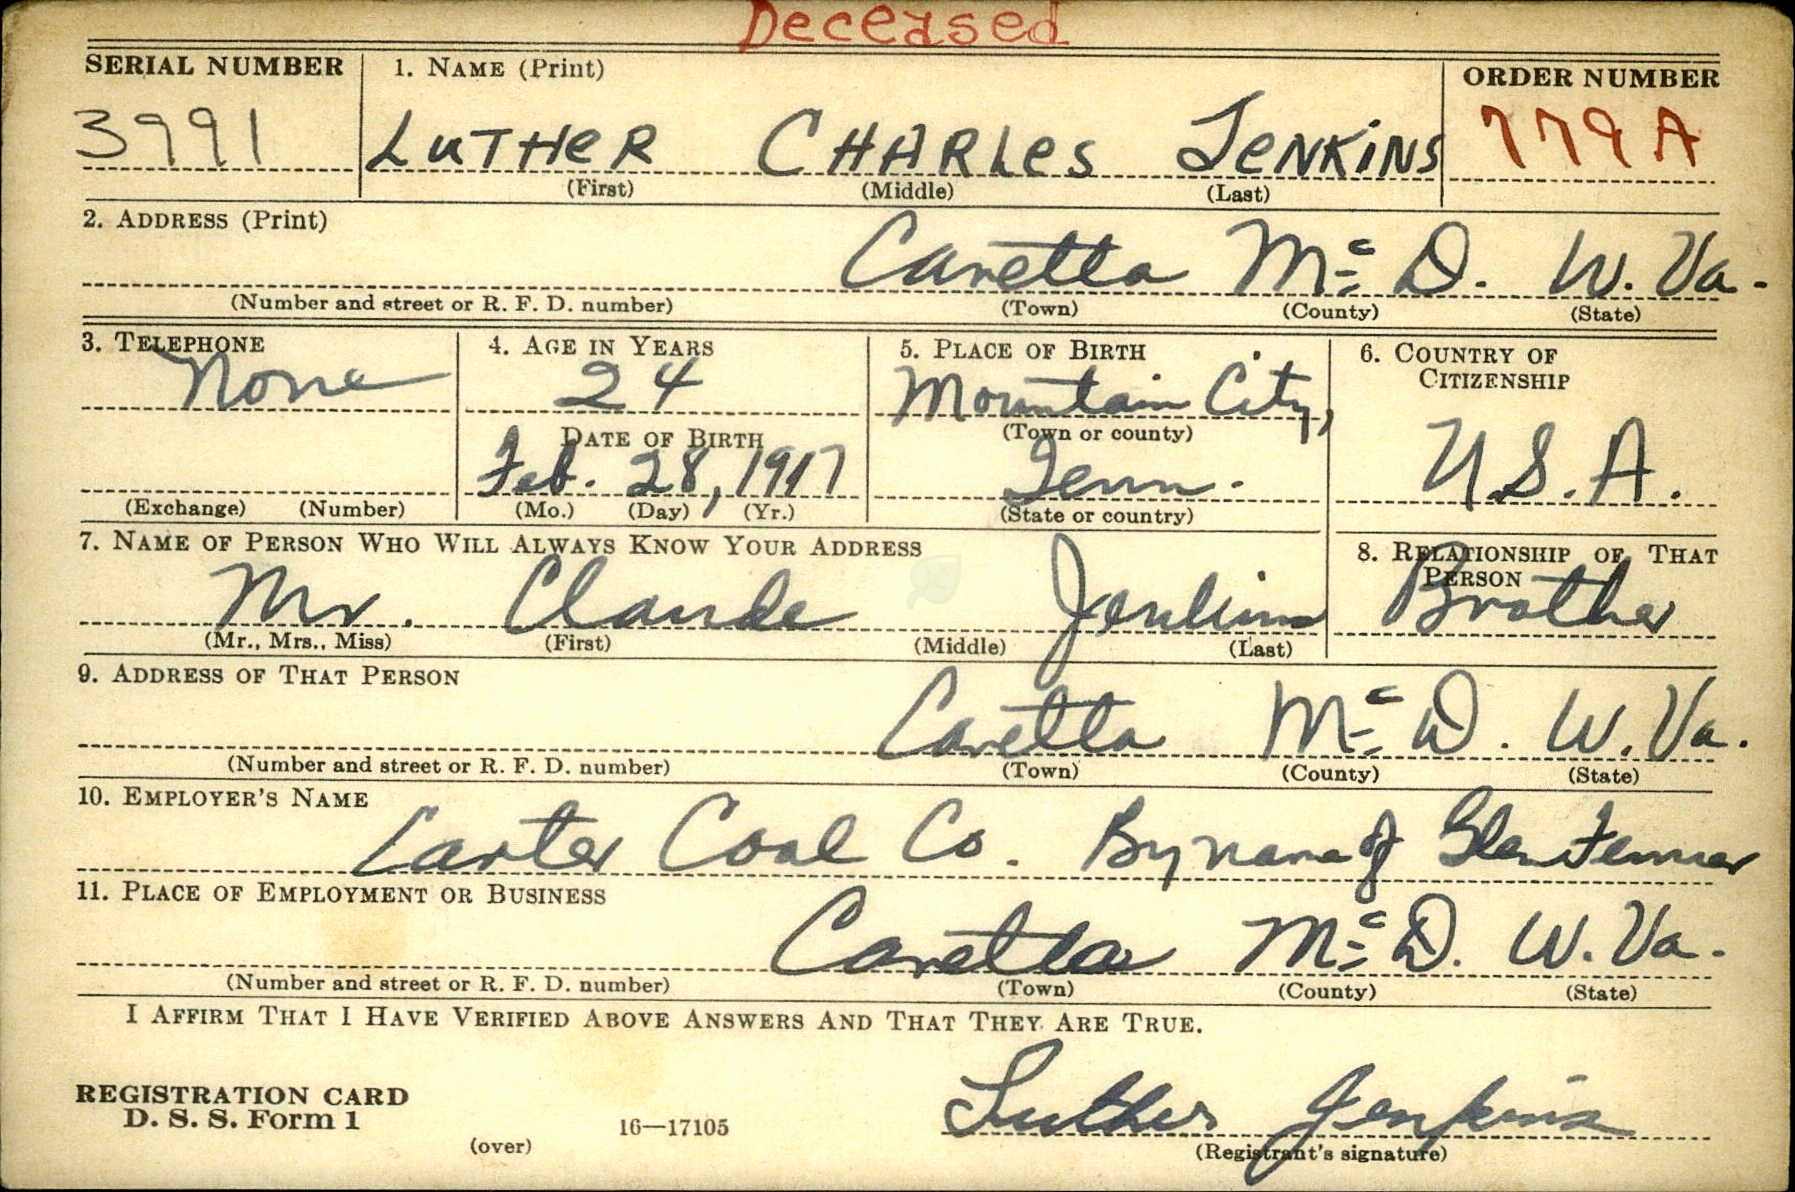 Deceased
SERIAL NUMBER 1. NAME (Print) ORDER NUMBER
3991 LUTHER CHARLES JENKINS 779 A
(First) (Middle) (Last)
2. ADDRESS (Print)
Caretta Mc D. W. Va.
(Number and street or R. F. D. number) (Town) (County) (State)
3. TELEPHONE 4. AGE IN YEARS 5. PLACE OF BIRTH 6. COUNTRY OF CITIZENSHIP
None 24 Mountain City,
DATE OF BIRTH (Town or county)
Feb. 28, 1917 Tenn. U.S.A.
(Exchange) (Number) (Mo.) (Day) (Yr.) (State or country)
7. NAME OF PERSON WHO WILL ALWAYS KNOW YOUR ADDRESS 8. RELATIONSHIP OF THAT PERSON
Mr. Claude Jenkins Brother
(Mr., Mrs., Miss) (First) (Middle) (Last)
9. ADDRESS OF THAT PERSON
Caretta Mc D. W. Va.
(Number and street or R. F. D. number) (Town) (County) (State)
10. EMPLOYER'S NAME
Carter Coal Co. By name of
11. PLACE OF EMPLOYMENT OR BUSINESS
Caretta Mc D. W. Va.
(Number and street or R. F. D. number) (Town) (County) (State)
I AFFIRM THAT I HAVE VERIFIED ABOVE ANSWERS AND THAT THEY ARE TRUE.
REGISTRATION CARD
D. S. S. Form 1
(over) 16—17105
Luther Jenkins
(Registrant's signature)